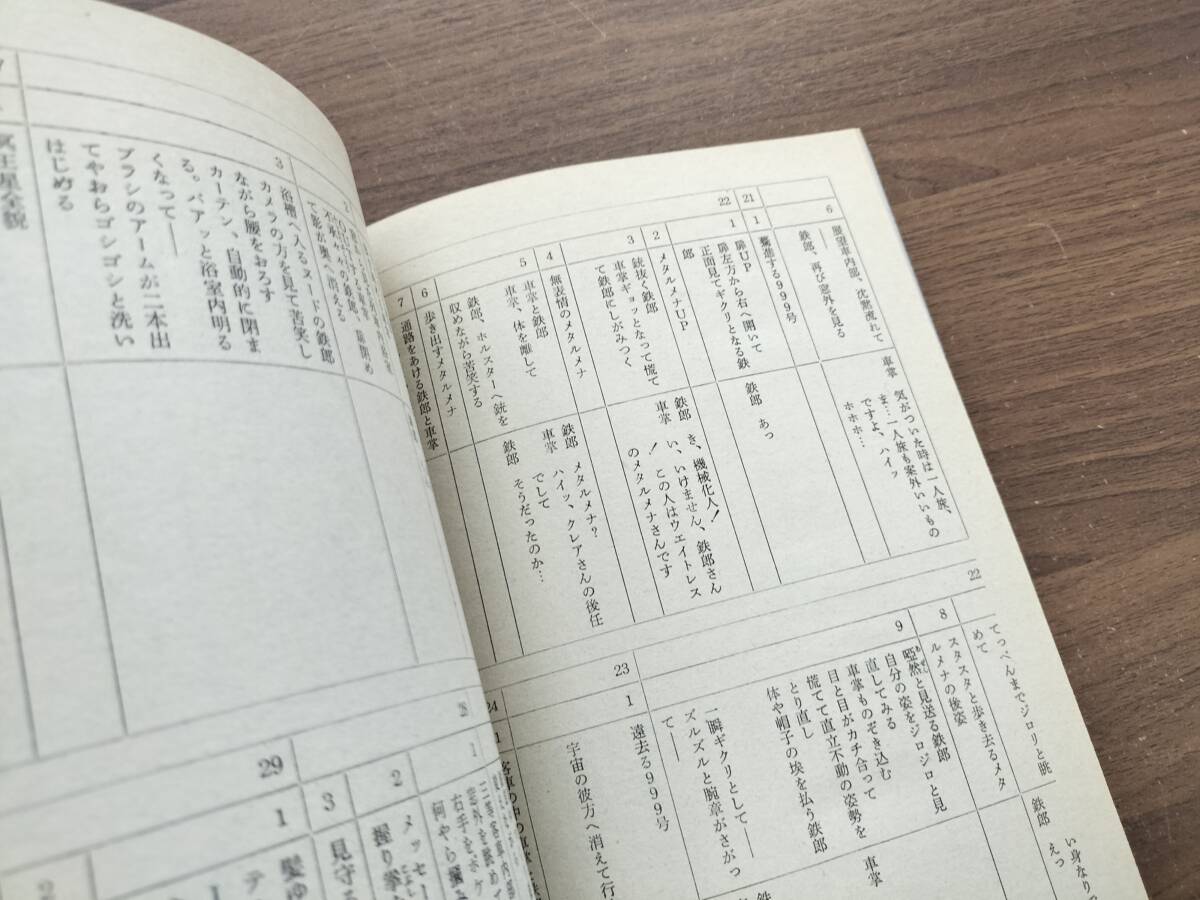 21
22
6
展望車内部、沈黙流れて
鉄郎、再び窓外を見る
車掌　気がついた時は一人旅、
ま…一人旅も案外いいもの
ですよ、ハイッ
ホホホ…
1
驀進する999号
1
扉UP
扉左方から右へ開いて
正面見てギクリとなる鉄
郎
鉄郎　あっ
2
メタルメナUP
3
銃抜く鉄郎
車掌ギョッとなって慌て
て鉄郎にしがみつく
鉄郎　き、機械化人！
車掌　い、いけません、鉄郎さん
！　この人はウエイトレス
のメタルメナさんです
4
無表情のメタルメナ
5
車掌と鉄郎
車掌、体を離して
鉄郎、ホルスターへ銃を
収めながら苦笑する
鉄郎　メタルメナ？
車掌　ハイッ、クレアさんの後任
でして
鉄郎　そうだったのか…
6
歩き出すメタルメナ
7
通路をあける鉄郎と車掌
22
てっぺんまでジロリと眺
めて
8
スタスタと歩き去るメタ
ルメナの後姿
9
啞然と見送る鉄郎
自分の姿をジロジロと見
直してみる
車掌ものぞき込む
目と目がカチ合って
慌てて直立不動の姿勢を
とり直し
体や帽子の埃を払う鉄郎
一瞬ギクリとして――
ズルズルと腕章がさがっ
て――
鉄郎
い身なりで
えつ
車掌
23
1
遠去る999号
宇宙の彼方へ消えて行
24
1
客車の中の車掌と鉄郎
3
浴槽へ入るヌードの鉄郎
カメラの方を見て苦笑し
ながら腰をおろす
カーテン、自動的に閉ま
る。パアッと浴室内明る
くなって――
ブラシのアームが二本出
てやおらゴシゴシと洗い
はじめる
冥王星全貌
28
1
窓外を眺め
右手をポケ
何やら握
2
メッセー
握り拳
3
見守る
29
1
髪ゆ
テ
2